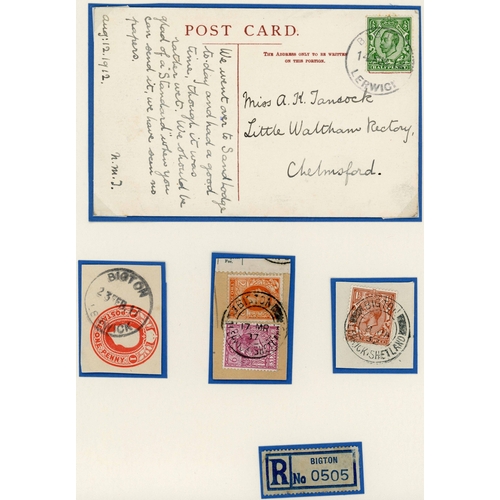 POST CARD.
THE ADDRESS ONLY TO BE WRITTEN
ON THIS PORTION.
We went over to Sandlodge
to-day and had a good
time, though it was
rather wet. We should be
glad of a "Standard" when you
can send it, we have seen no
papers.
N.M.T.
Aug: 12. 1912.
Miss A. H. Tancock
Little Waltham Rectory,
Chelmsford.
LERWICK
BIGTON
23 FE
POSTAGE
ONE PENNY
BIGTON
17 MR
37
BIGTON
LERWICK·SHETLAND
R
BIGTON
No 0505